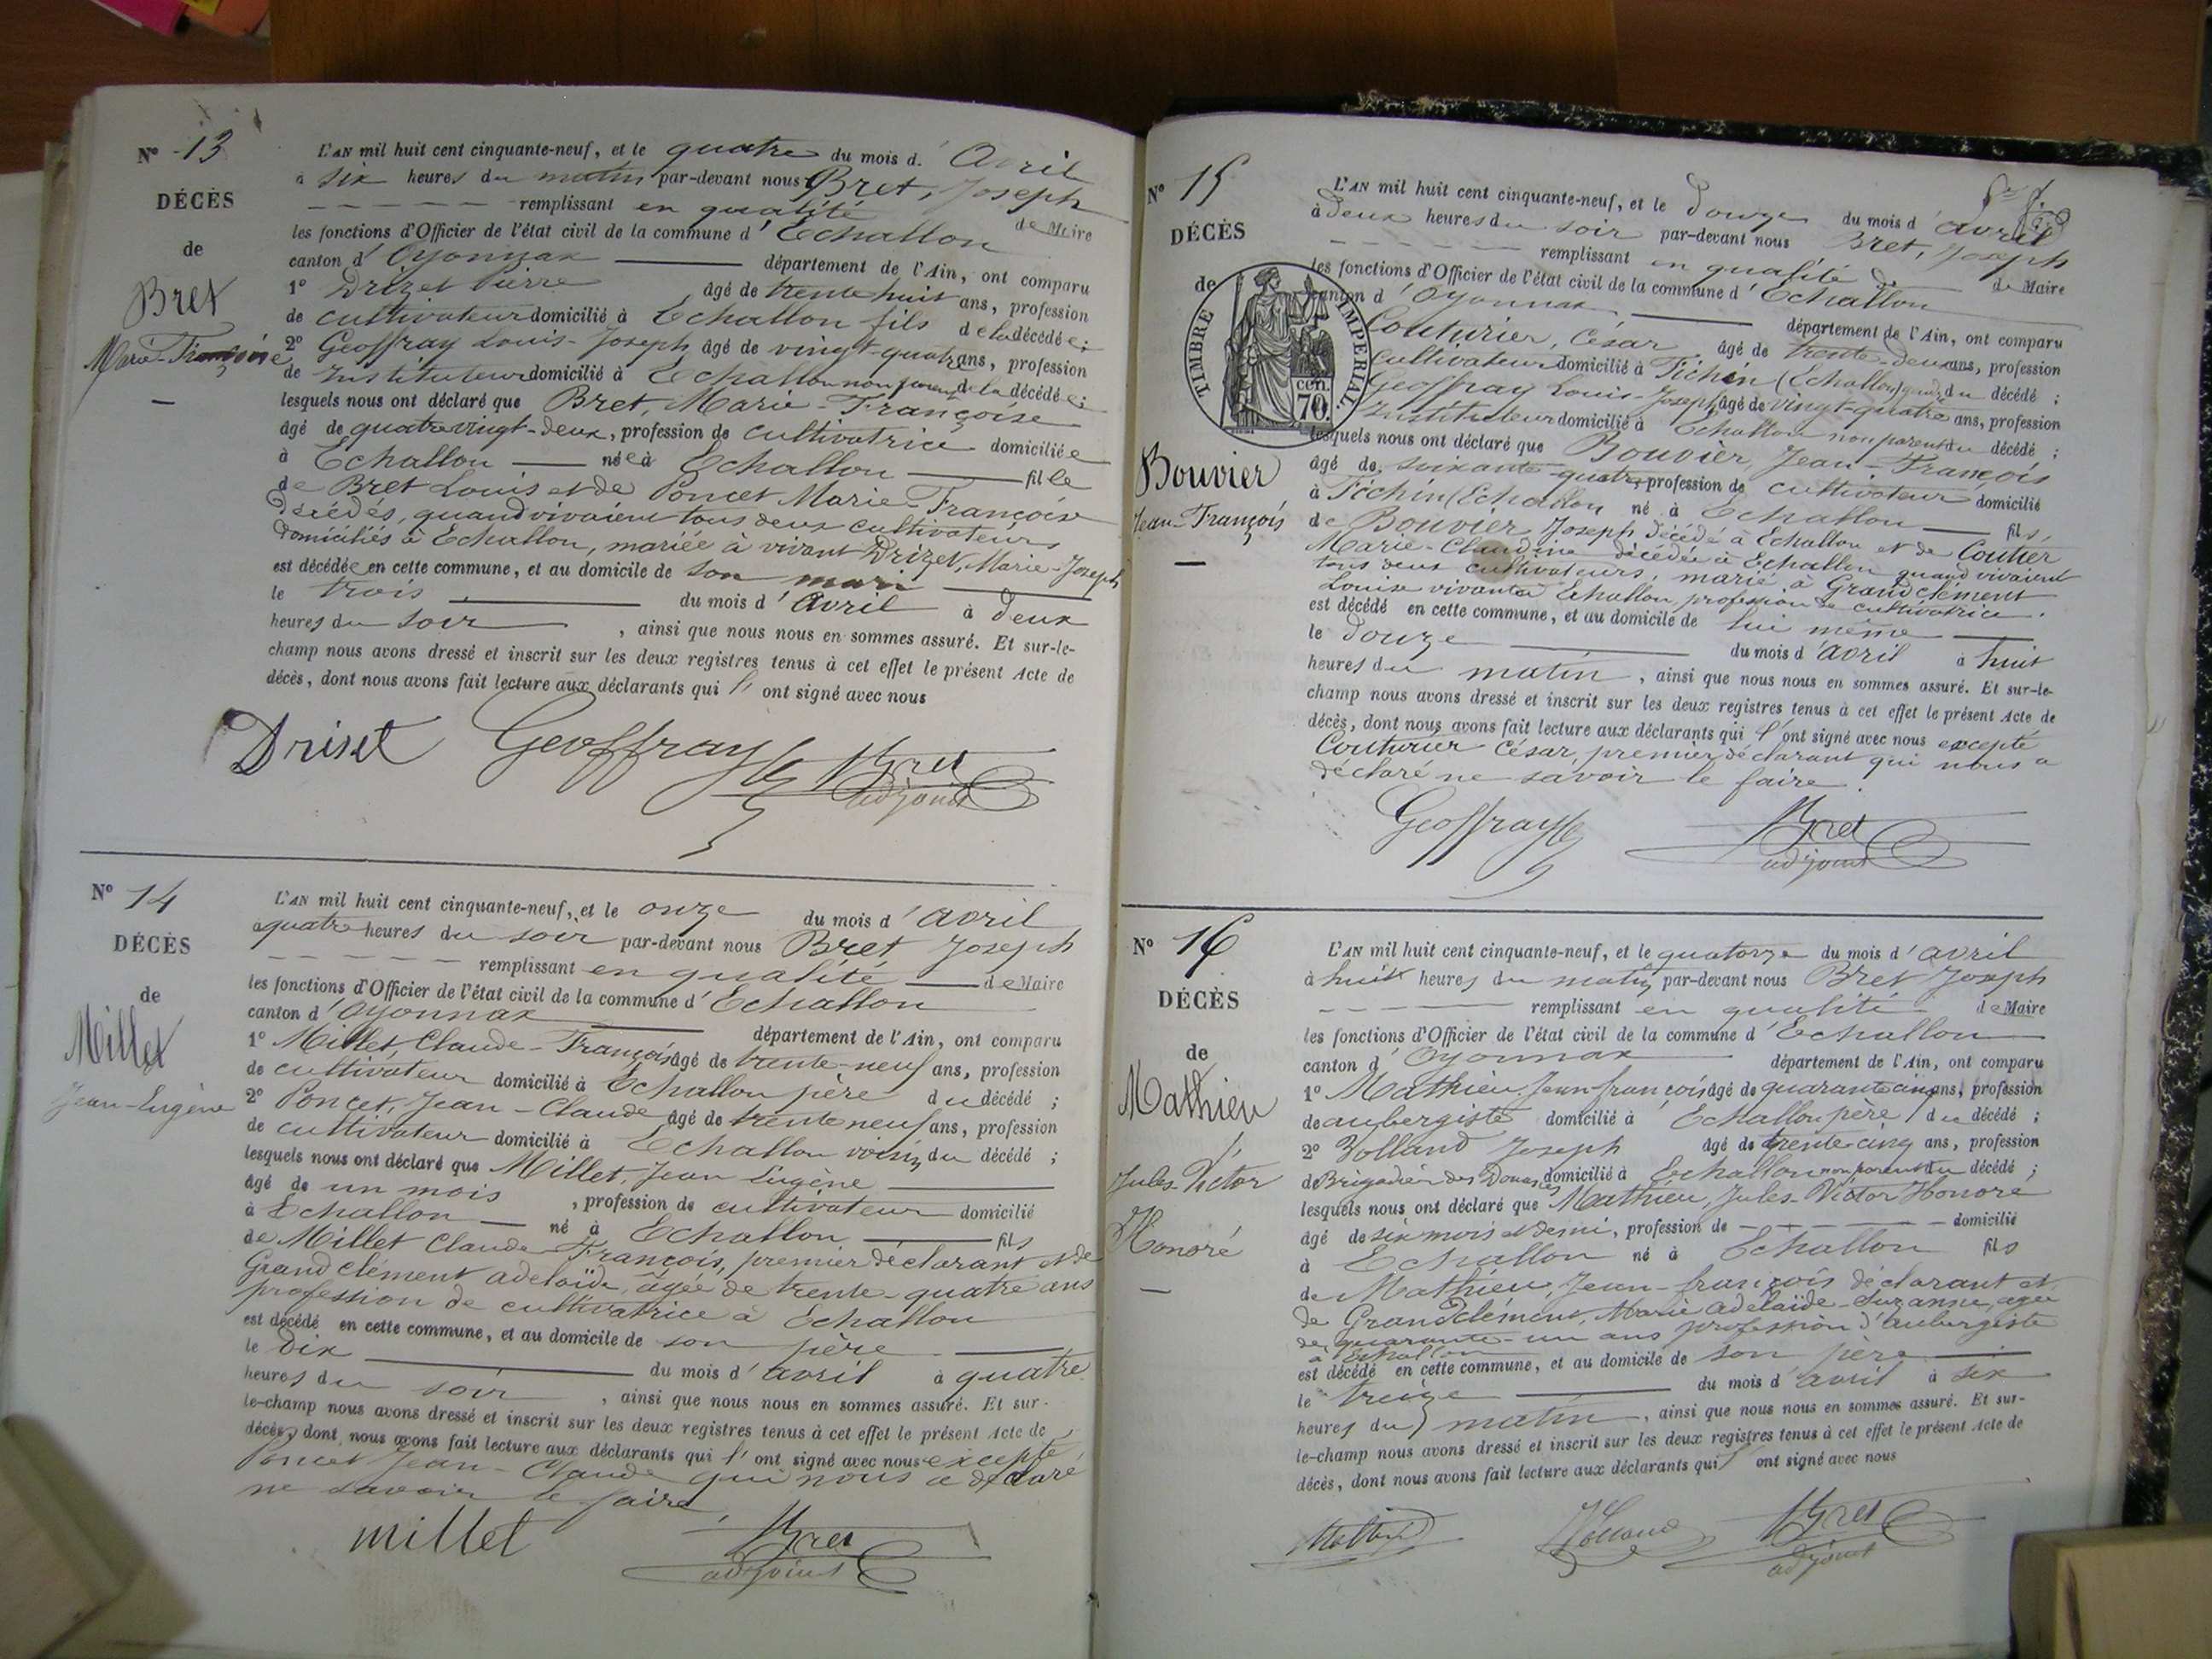 Nº 13
DÉCÈS
de
Bret
Marie-Françoise
L'AN mil huit cent cinquante-neuf, et le quatre du mois d'Avril
à six heures du matin par-devant nous Bret, Joseph
remplissant en qualité de Maire
les fonctions d'Officier de l'état civil de la commune d'Echallon
canton d'Oyonnax département de l'Ain, ont comparu
1º Drizet Pierre âgé de trente huit ans, profession
de cultivateur domicilié à Echallon fils de la décédée;
2º Geoffray Louis-Joseph âgé de vingt-quatre ans, profession
de Instituteur domicilié à Echallon non parent de la décédée;
lesquels nous ont déclaré que Bret, Marie-Françoise
âgé de quatrevingt-deux, profession de cultivatrice domiciliée
à Echallon née à Echallon fille
de Bret Louis et de Poncet Marie-Françoise
décédés, quand vivaient tous deux cultivateurs
domiciliés à Echallon, mariée à vivant Drizet, Marie-Joseph
est décédée en cette commune, et au domicile de son mari
le trois du mois d'Avril à deux
heures du soir, ainsi que nous nous en sommes assuré. Et sur-le-
champ nous avons dressé et inscrit sur les deux registres tenus à cet effet le présent Acte de
décès, dont nous avons fait lecture aux déclarants qui l'ont signé avec nous
Driset Geoffray Bret
adjoint
Nº 14
DÉCÈS
de
Millet
Jean-Eugène
L'AN mil huit cent cinquante-neuf, et le onze du mois d'avril
à quatre heures du soir par-devant nous Bret Joseph
remplissant en qualité de Maire
les fonctions d'Officier de l'état civil de la commune d'Echallon
canton d'Oyonnax département de l'Ain, ont comparu
1º Millet, Claude-François âgé de trente-neuf ans, profession
de cultivateur domicilié à Echallon père du décédé;
2º Poncet, Jean-Claude âgé de trente neuf ans, profession
de cultivateur domicilié à Echallon voisin du décédé;
lesquels nous ont déclaré que Millet, Jean Eugène
âgé de un mois, profession de cultivateur domicilié
à Echallon né à Echallon fils
de Millet Claude-François, premier déclarant et de
Grandclément adelaïde, âgée de trente-quatre ans
profession de cultivatrice à Echallon
est décédé en cette commune, et au domicile de son père
le Dix du mois d'avril à quatre
heures du soir, ainsi que nous nous en sommes assuré. Et sur-
le-champ nous avons dressé et inscrit sur les deux registres tenus à cet effet le présent Acte de
décès, dont nous avons fait lecture aux déclarants qui l'ont signé avec nous excepté
Poncet Jean-Claude qui nous a déclaré
ne savoir le faire
millet Bret
adjoint
Nº 15
DÉCÈS
de
TIMBRE IMPERIAL
70 cen.
Bouvier
Jean-François
L'AN mil huit cent cinquante-neuf, et le Douze du mois d'avril
à Deux heures du soir par-devant nous Bret, Joseph
remplissant en qualité de Maire
les fonctions d'Officier de l'état civil de la commune d'Echallon
canton d'Oyonnax département de l'Ain, ont comparu
Couturier, César âgé de trente-deux ans, profession
Cultivateur domicilié à Fichin (Echallon) du décédé;
Geoffray Louis-Joseph âgé de vingt-quatre ans, profession
Instituteur domicilié à Echallon non parent du décédé;
lesquels nous ont déclaré que Bouvier, Jean-François
âgé de soixante-quatre, profession de cultivateur domicilié
à Fichin (Echallon né à Echallon fils
de Bouvier Joseph décédé à Echallon et de Coutier
Marie-Claudine décédée à Echallon quand vivaient
tous deux cultivateurs, marié à Grandclément
Louise vivant à Echallon, profession de cultivatrice.
est décédé en cette commune, et au domicile de lui même
le Douze du mois d'avril à huit
heures du matin, ainsi que nous nous en sommes assuré. Et sur-le-
champ nous avons dressé et inscrit sur les deux registres tenus à cet effet le présent Acte de
décès, dont nous avons fait lecture aux déclarants qui l'ont signé avec nous excepté
Couturier César, premier déclarant qui nous a
déclaré ne savoir le faire.
Geoffray Bret
adjoint
Nº 16
DÉCÈS
de
Mathieu
Jules-Victor
Honoré
L'AN mil huit cent cinquante-neuf, et le quatorze du mois d'avril
à huit heures du matin par-devant nous Bret Joseph
remplissant en qualité de Maire
les fonctions d'Officier de l'état civil de la commune d'Echallon
canton d'Oyonnax département de l'Ain, ont comparu
1º Mathieu, Jean-françois âgé de quarante cinq ans, profession
de aubergiste domicilié à Echallon père du décédé;
2º Zolland Joseph âgé de trente-cinq ans, profession
de Brigadier des Douanes domicilié à Echallon non parent du décédé;
lesquels nous ont déclaré que Mathieu, Jules-Victor Honoré
âgé de six mois et demi, profession de domicilié
à Echallon né à Echallon fils
de Mathieu, Jean-françois déclarant et
de Grandclément, Marie adelaïde-Suzanne, agée
de quarante-un ans profession d'aubergiste
à Echallon
est décédé en cette commune, et au domicile de son père
le treize du mois d'avril à six
heures du matin, ainsi que nous nous en sommes assuré. Et sur-
le-champ nous avons dressé et inscrit sur les deux registres tenus à cet effet le présent Acte de
décès, dont nous avons fait lecture aux déclarants qui l'ont signé avec nous
Mathieu Zolland Bret
adjoint